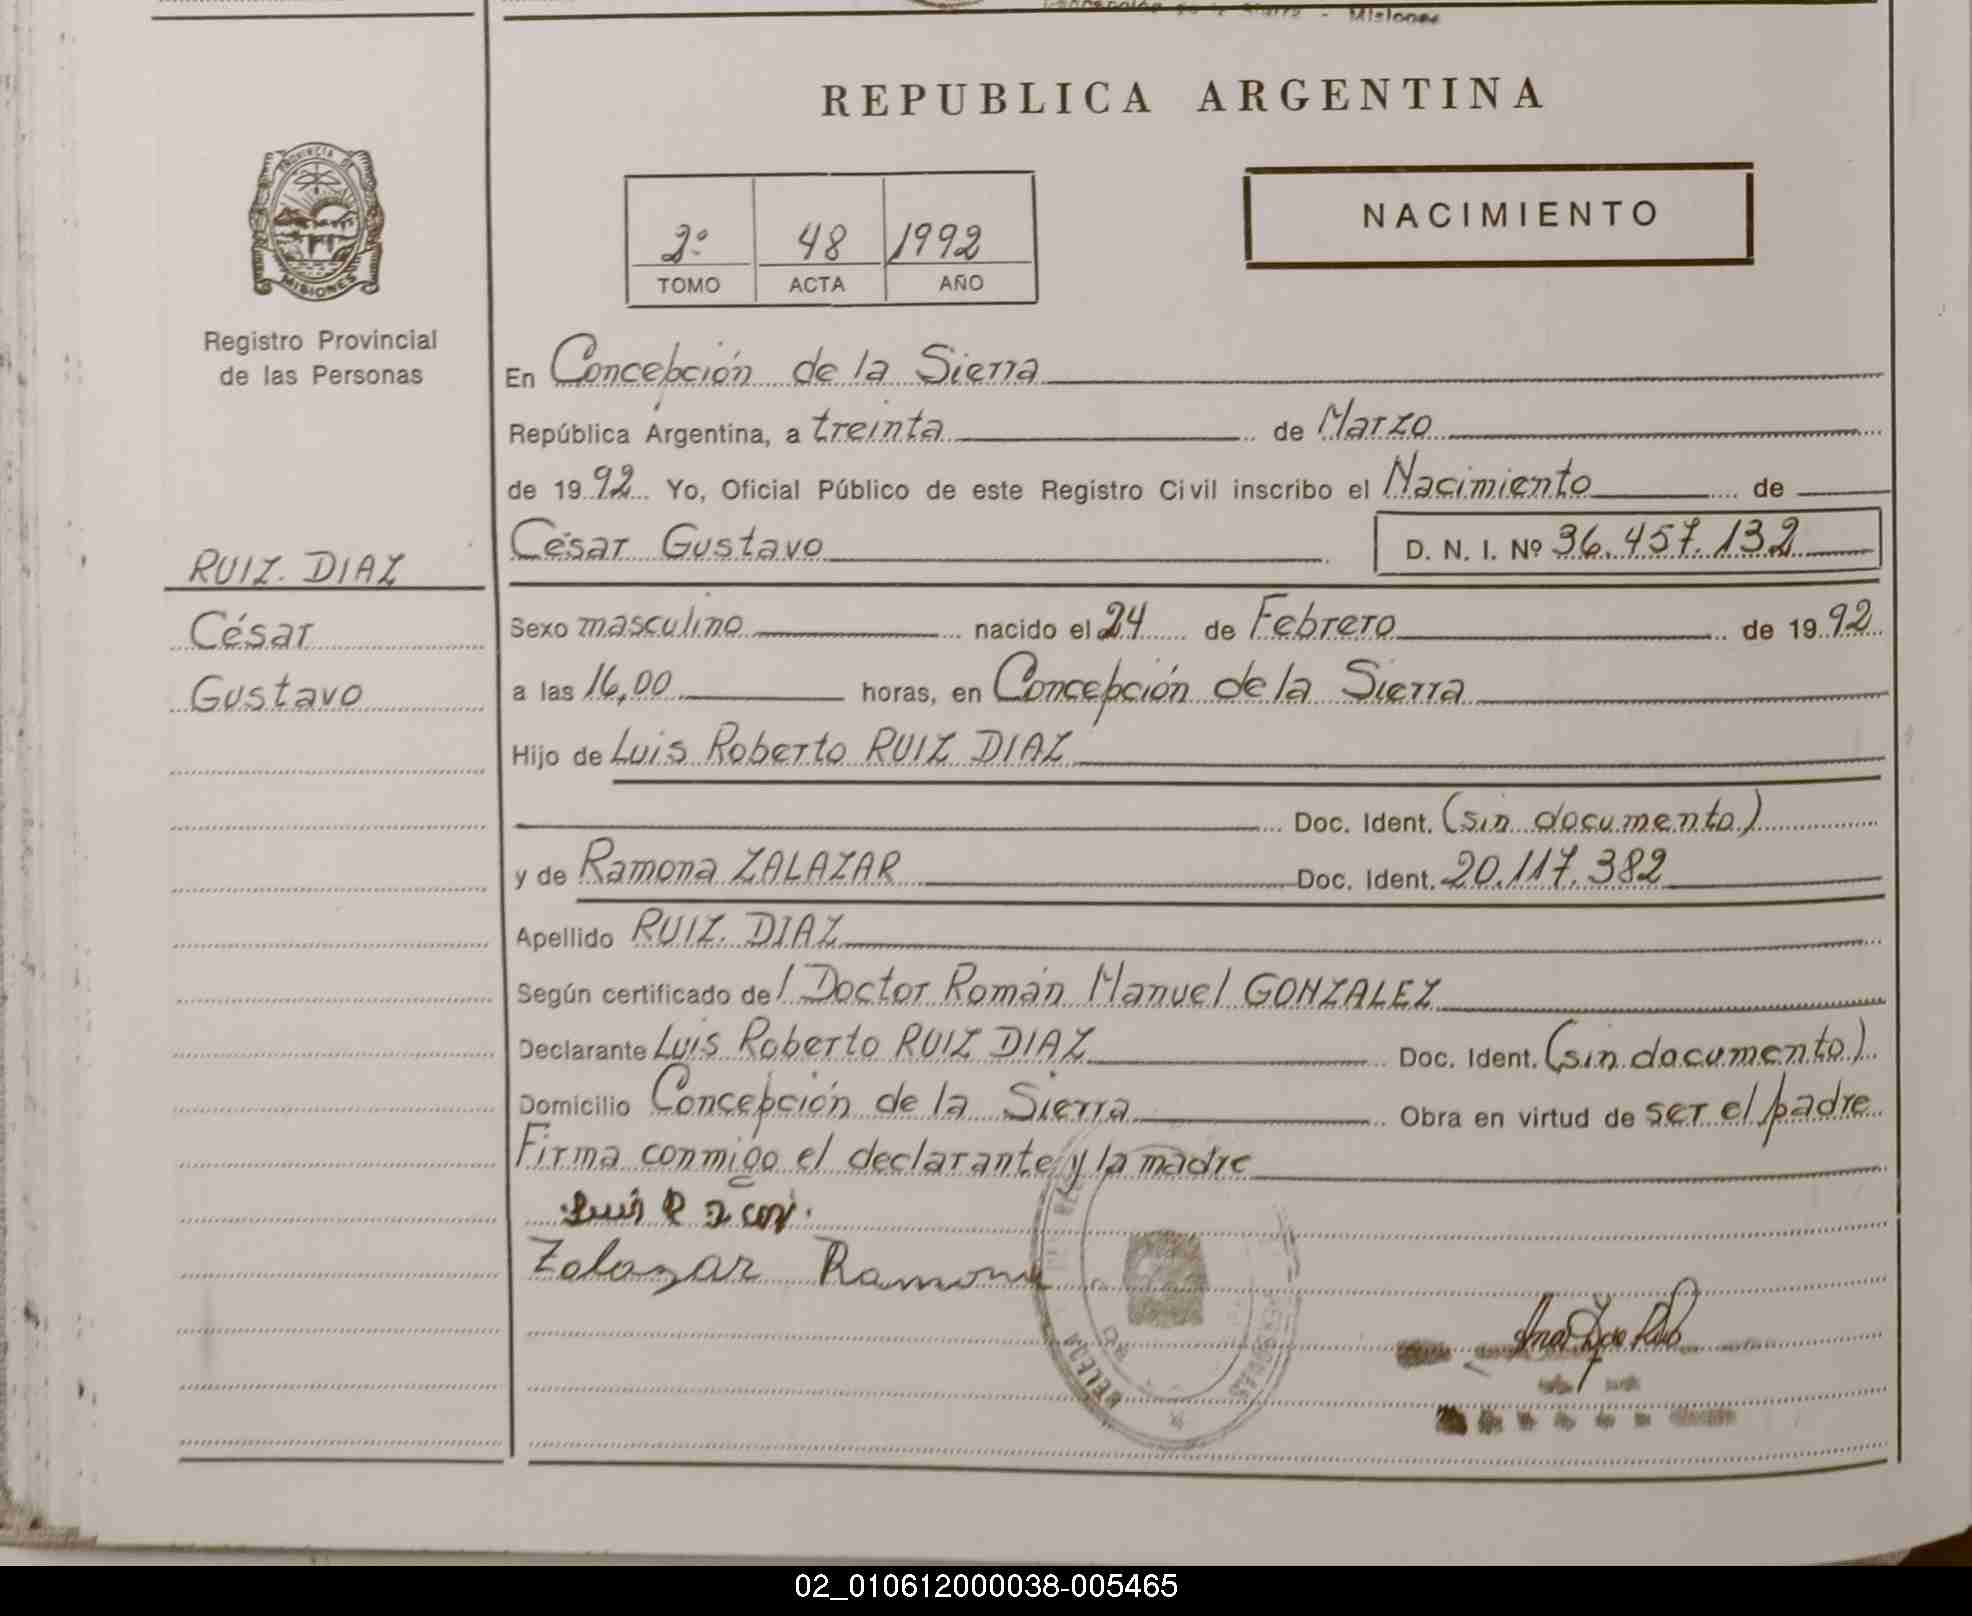 Concepción de la Sierra - Misiones
REPUBLICA ARGENTINA
PROVINCIA DE
MISIONES
2º 48 1992
TOMO ACTA AÑO
NACIMIENTO
Registro Provincial
de las Personas
En Concepción de la Sierra
República Argentina, a treinta de Marzo
de 1992 Yo, Oficial Público de este Registro Civil inscribo el Nacimiento de
César Gustavo D. N. I. Nº 36.457.132
RUIZ DIAZ
César
Gustavo
Sexo masculino nacido el 24 de Febrero de 1992
a las 16,00 horas, en Concepción de la Sierra
Hijo de Luis Roberto RUIZ DIAZ
Doc. Ident. (sin documento)
y de Ramona ZALAZAR Doc. Ident. 20.117.382
Apellido RUIZ DIAZ
Según certificado del Doctor Román Manuel GONZALEZ
Declarante Luis Roberto RUIZ DIAZ Doc. Ident. (sin documento)
Domicilio Concepción de la Sierra Obra en virtud de ser el padre
Firma conmigo el declarante y la madre
Luis R
Zalazar Ramona
02_010612000038-005465